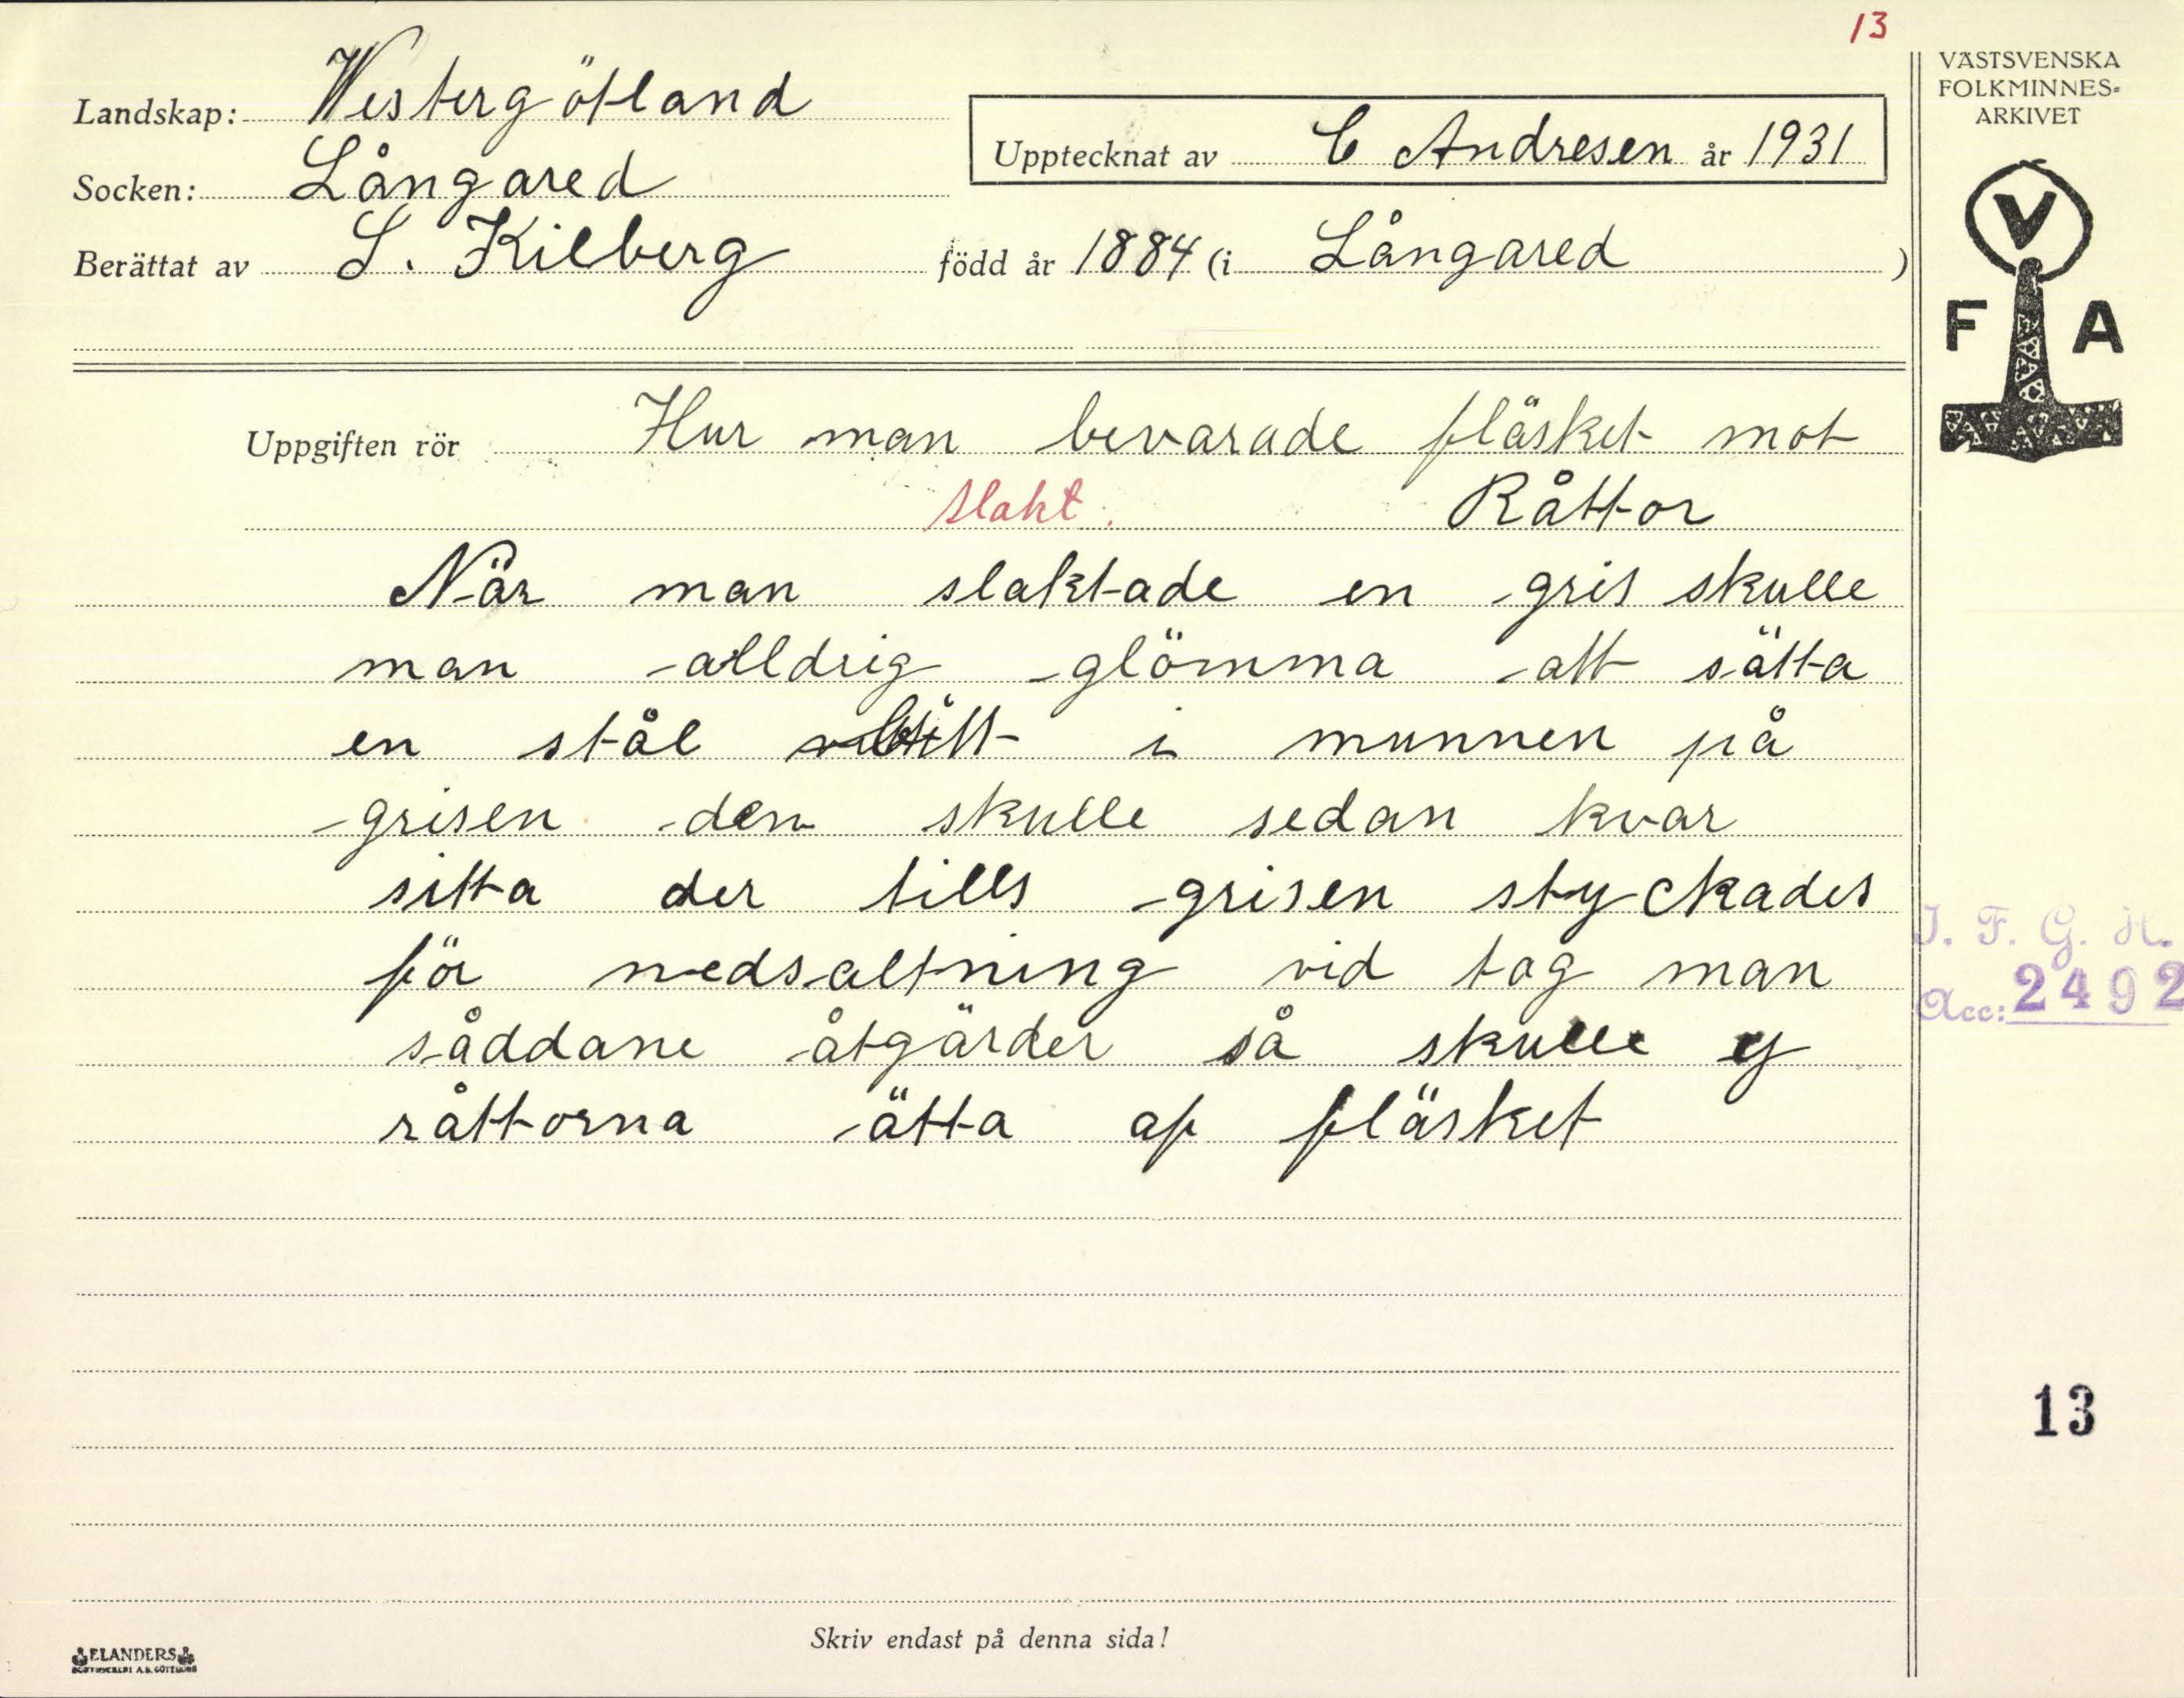 13
Landskap: Westergötland
Socken: Långared
Upptecknat av C Andresen år 1931
Berättat av S. Kilberg född år 1884 (i Långared )
VÄSTSVENSKA
FOLKMINNES-
ARKIVET
V
F A
Uppgiften rör Hur man bevarade fläsket mot
Slakt. Råttor
När man slaktade en gris skulle
man alldrig glömma att sätta
en stål i munnen på
grisen den skulle sedan kvar
sitta der tills grisen styckades
för nedsaltning vid tog man
såddane åtgärder så skulle ej
råttorna ätta af fläsket
I. F. G. H.
Acc: 2492
13
Skriv endast på denna sida!
ELANDERS
BOKTRYCKERI A.B. GÖTEBORG